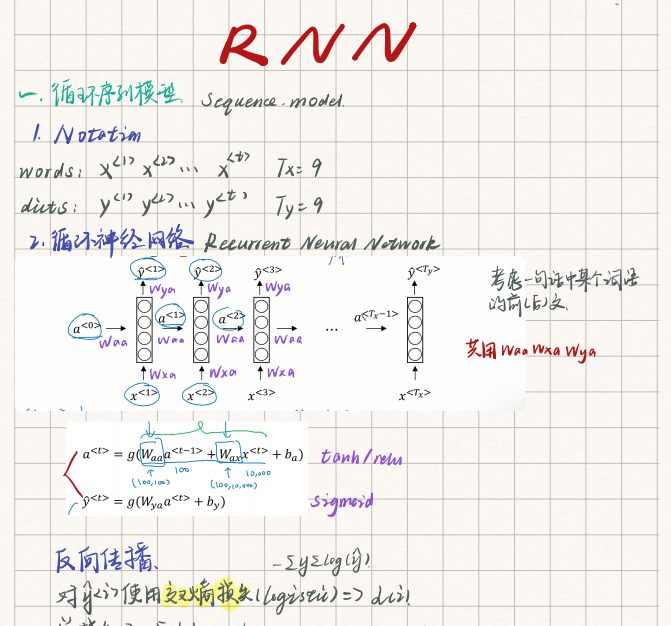 RNN
一. 循环序列模型 Sequence model.
1. Notatim
words: x^<1> x^<2> ... x^<t> Tx = 9
dicts: y^<1> y^<2> ... y^<t> Ty = 9
2. 循环神经网络 Recurrent Neural Network
ŷ^<1> ŷ^<2> ŷ^<3> ŷ^<Ty>
Wya Wya Wya
a^<0> a^<1> a^<2> ... a^<Tx-1>
Waa Waa Waa Waa
Wxa Wxa Wxa
x^<1> x^<2> x^<3> x^<Tx>
考虑一句话中某个词语
的前(后)文.
共用 Waa Wxa Wya
a^<t> = g(W_aa a^<t-1> + W_ax x^<t> + b_a) tanh/relu
100 10,000
(100,100) (100,10,000)
ŷ^<t> = g(W_ya a^<t> + b_y) sigmoid
反向传播.
-ΣyΣlog(ŷ)!
对ŷ<i>使用交叉熵损失(logistic) => d(i)!